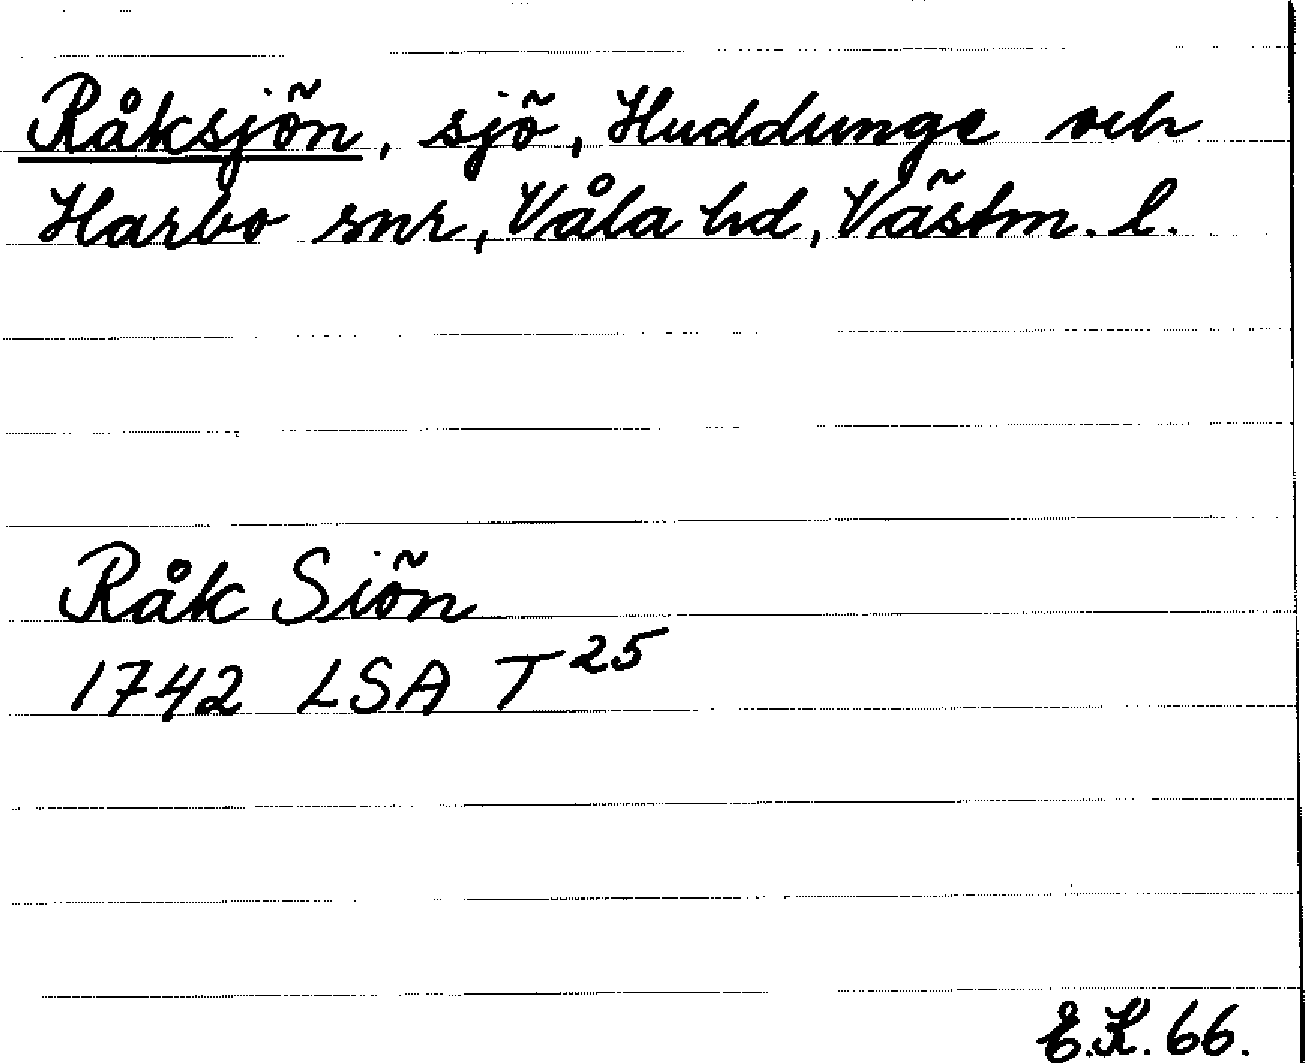 Råksjön, sjö, Huddunge och
Harbo snr, Våla hd, Västm. l.
Råk Siön
1742 LSA T 25
E.K. 66.